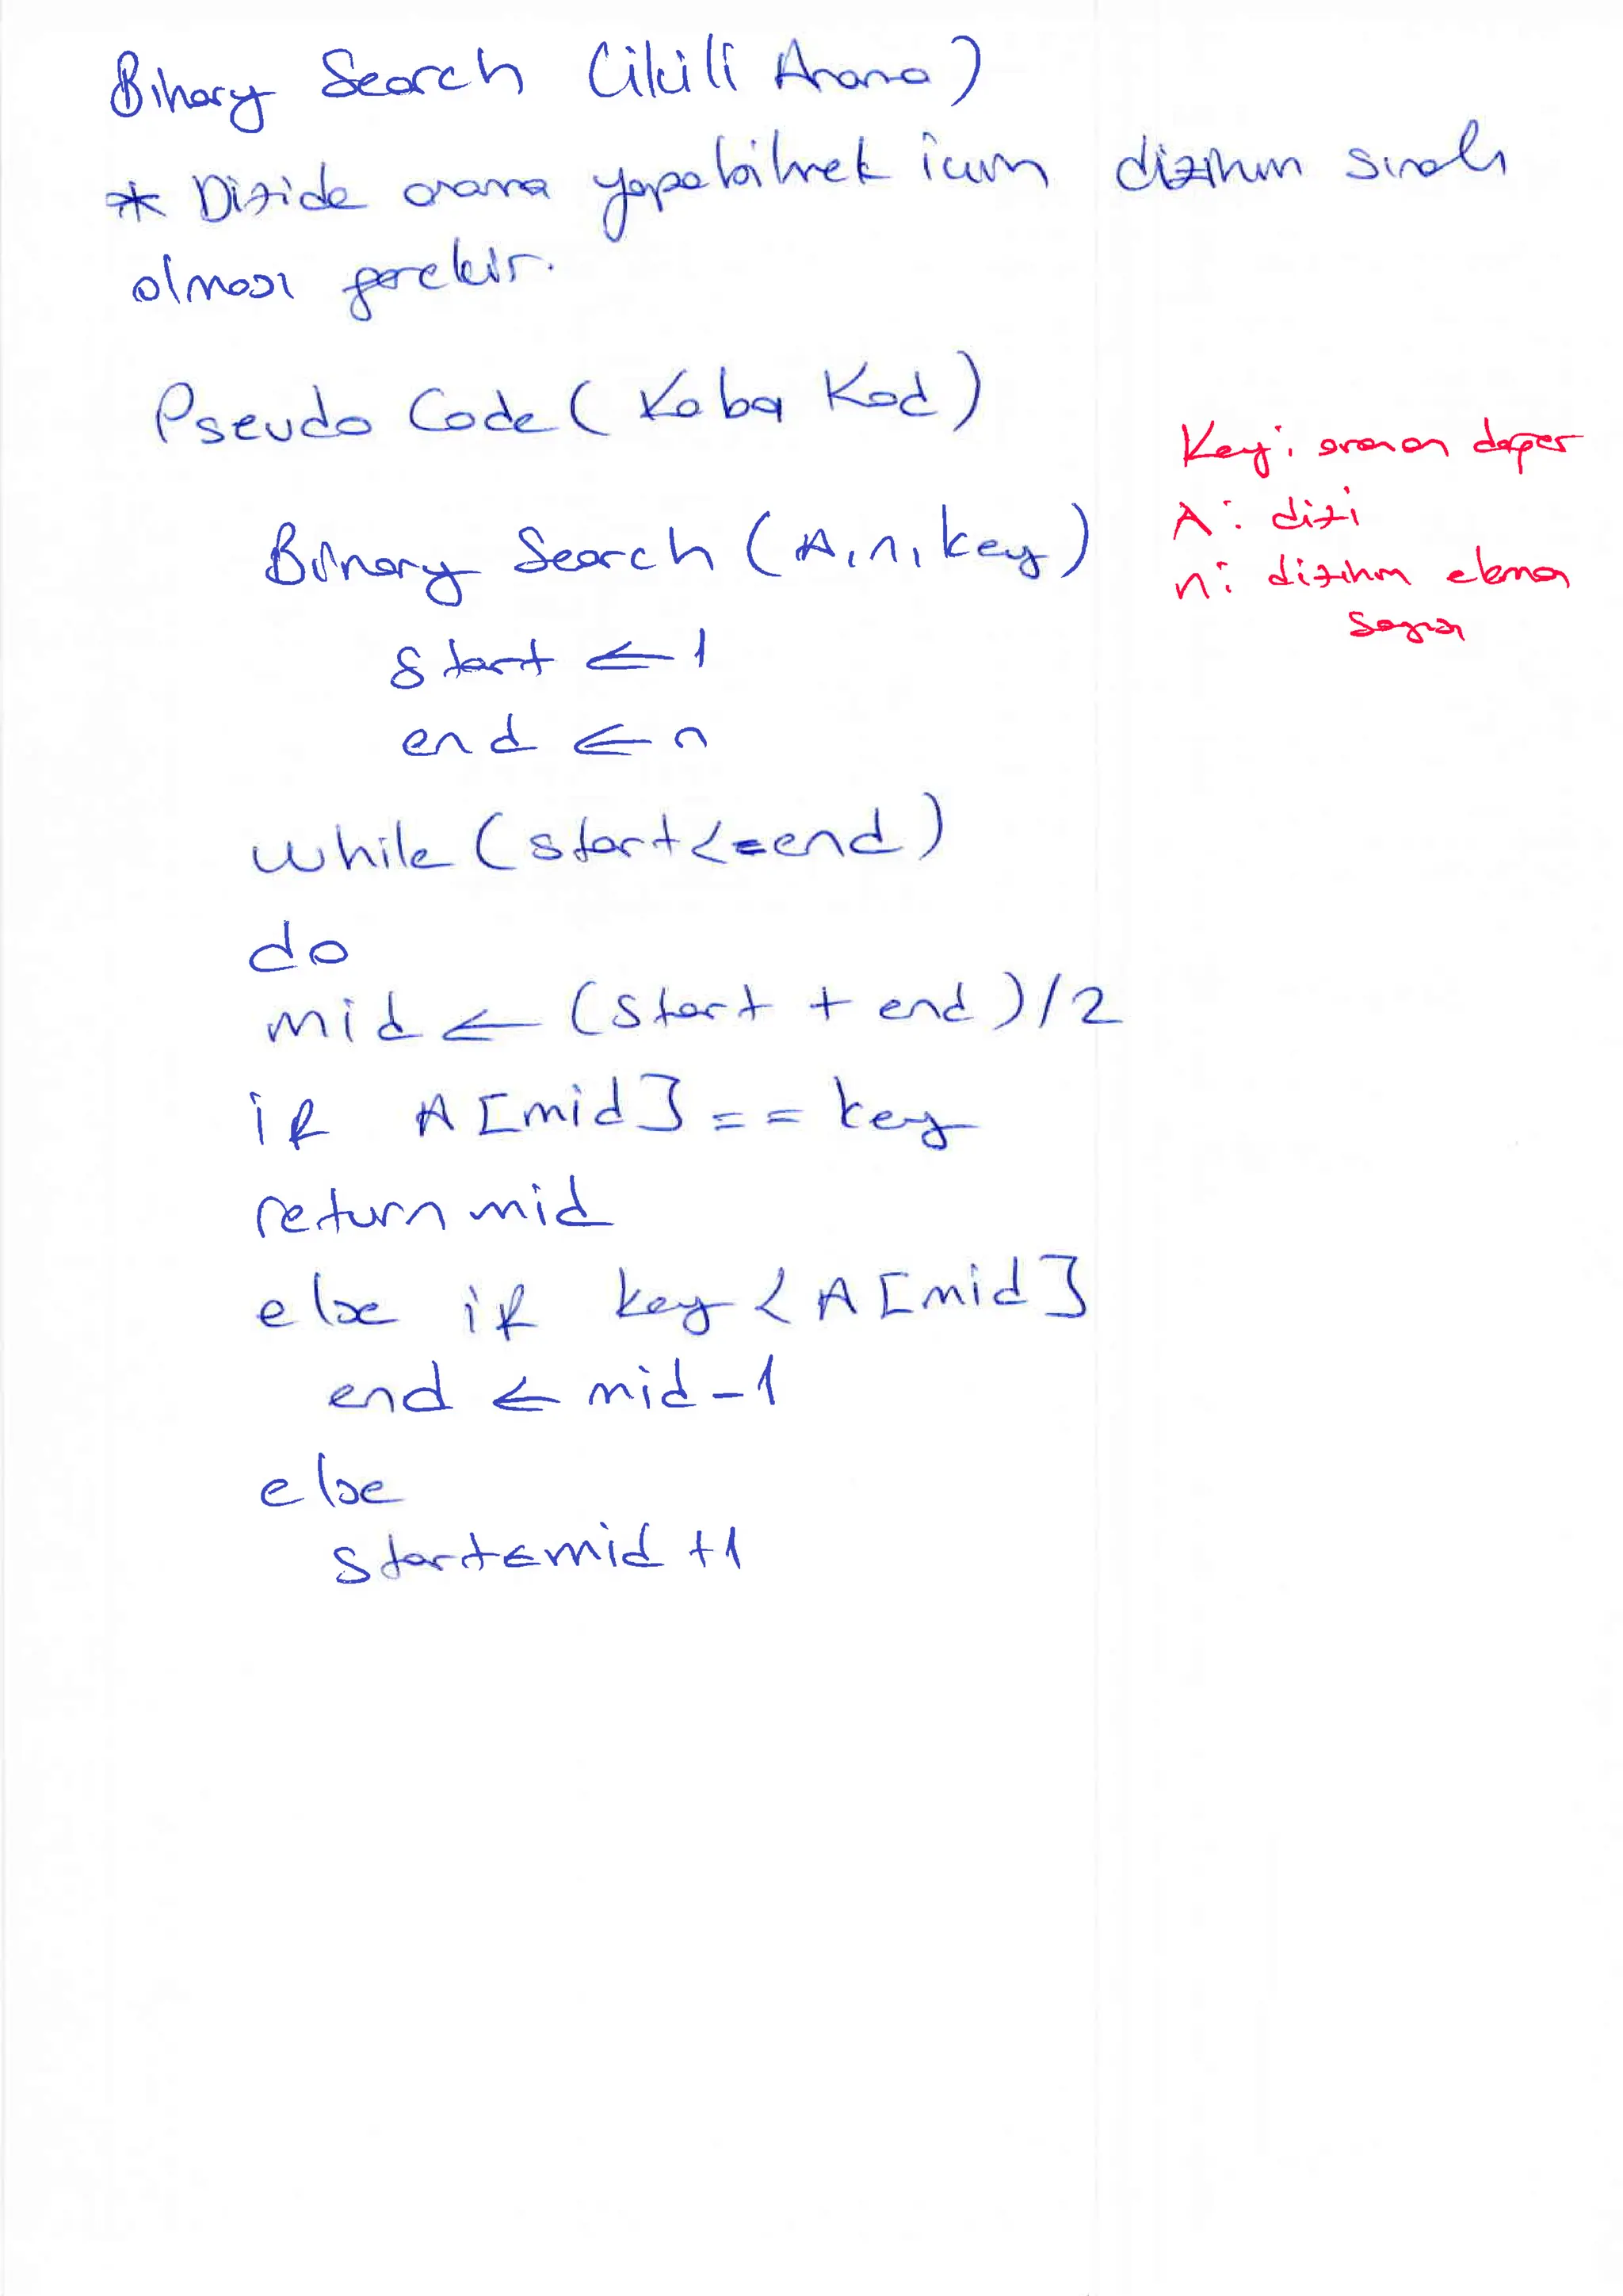 Binary Search (ikili Arama)
* Dizide arama yapabilmek için dizinin sıralı
olması gerekir.
Pseudo Code (Kaba Kod)
Key: aranan değer
A: dizi
n: dizinin eleman
sayısı
Binary Search (A, n, key)
start ← 1
end ← n
while (start <= end)
do
mid ← (start + end) / 2
if A[mid] == key
return mid
else if key < A[mid]
end ← mid - 1
else
start ← mid + 1